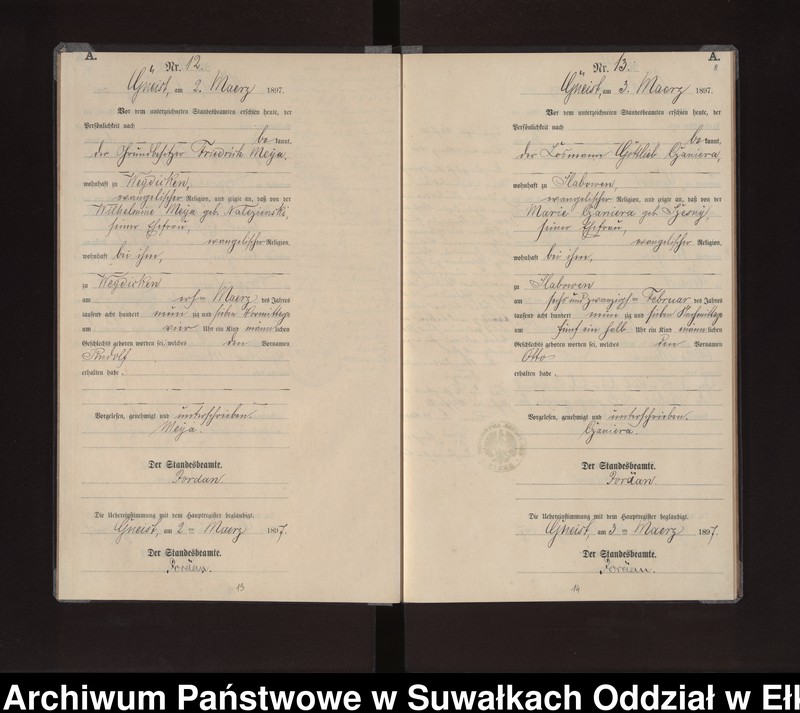 A.
Nr. 12.
Gneist, am 2. Maerz 1897.
Vor dem unterzeichneten Standesbeamten erschien heute, der
Persönlichkeit nach
bekannt,
der Grundbesitzer Friedrich Meya,
wohnhaft zu Weydicken,
evangelischer Religion, und zeigte an, daß von der
Wilhelmine Meya geb.
seiner Ehefrau,
evangelischer Religion,
wohnhaft bei ihm,
zu Weydicken
am ersten Maerz des Jahres
tausend acht hundert neunzig und sieben Vormittags
um vier Uhr ein Kind männlichen
Geschlechts geboren worden sei, welches den Vornamen
Rudolf
erhalten habe.
Vorgelesen, genehmigt und unterschrieben.
Meya.
Der Standesbeamte.
Jordan.
Die Uebereinstimmung mit dem Hauptregister beglaubigt.
Gneist, am 2ten Maerz 1897.
Der Standesbeamte.
Jordan.
13
A.
Nr. 13.
8
Gneist, am 3. Maerz 1897.
Vor dem unterzeichneten Standesbeamten erschien heute, der
Persönlichkeit nach
bekannt,
der Losmann Gottlieb Czaniera,
wohnhaft zu Slabowen,
evangelischer Religion, und zeigte an, daß von der
Marie Czaniera geb.
seiner Ehefrau,
evangelischer Religion,
wohnhaft bei ihm,
zu Slabowen
am sechs und zwanzigsten Februar des Jahres
tausend acht hundert neunzig und sieben Nachmittags
um fünf ein halb Uhr ein Kind männlichen
Geschlechts geboren worden sei, welches den Vornamen
Otto
erhalten habe.
Vorgelesen, genehmigt und unterschrieben.
Czaniera.
Der Standesbeamte.
Jordan.
Die Uebereinstimmung mit dem Hauptregister beglaubigt.
Gneist, am 3ten Maerz 1897.
Der Standesbeamte.
Jordan.
14
Archiwum Państwowe w Suwałkach Oddział w Ełk